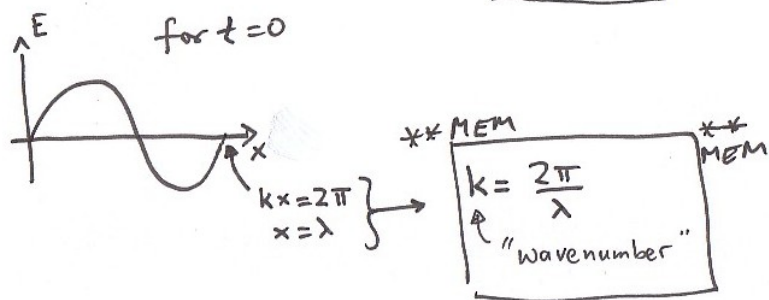 E
for t=0
x
kx=2π
x=λ
** MEM
** MEM
k= 2π/λ
"wavenumber"